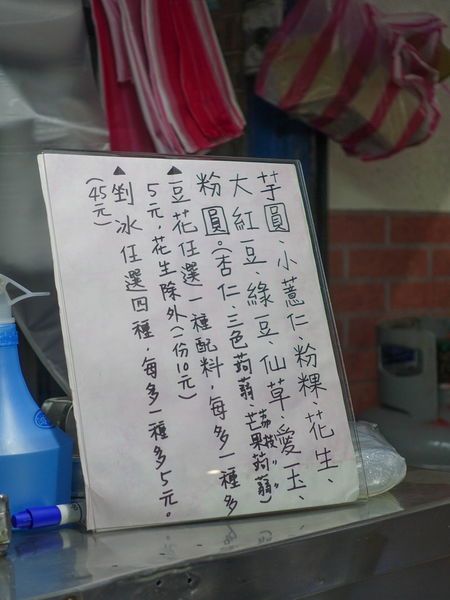 芋圓、小薏仁、粉粿、花生、
大紅豆、綠豆、仙草、愛玉、
粉圓。(杏仁、三色蒟蒻、荔枝〃〃、芒果蒟蒻)
▲豆花任選一種配料，每多一種多
5元，花生除外(一份10元)
▲剉冰任選四種，每多一種多5元。
(45元)